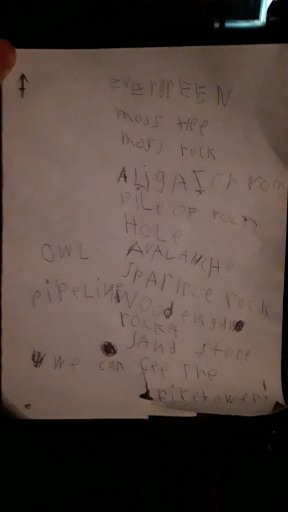 EVERREEN
moss tree
moss rock
ALigATOr rock
PiLE OF rocks
HOLE
OWL AVALANCHE
SPArKLE rock
PiPELiNE
rocks
SAND stone
we can see the
Firetower!